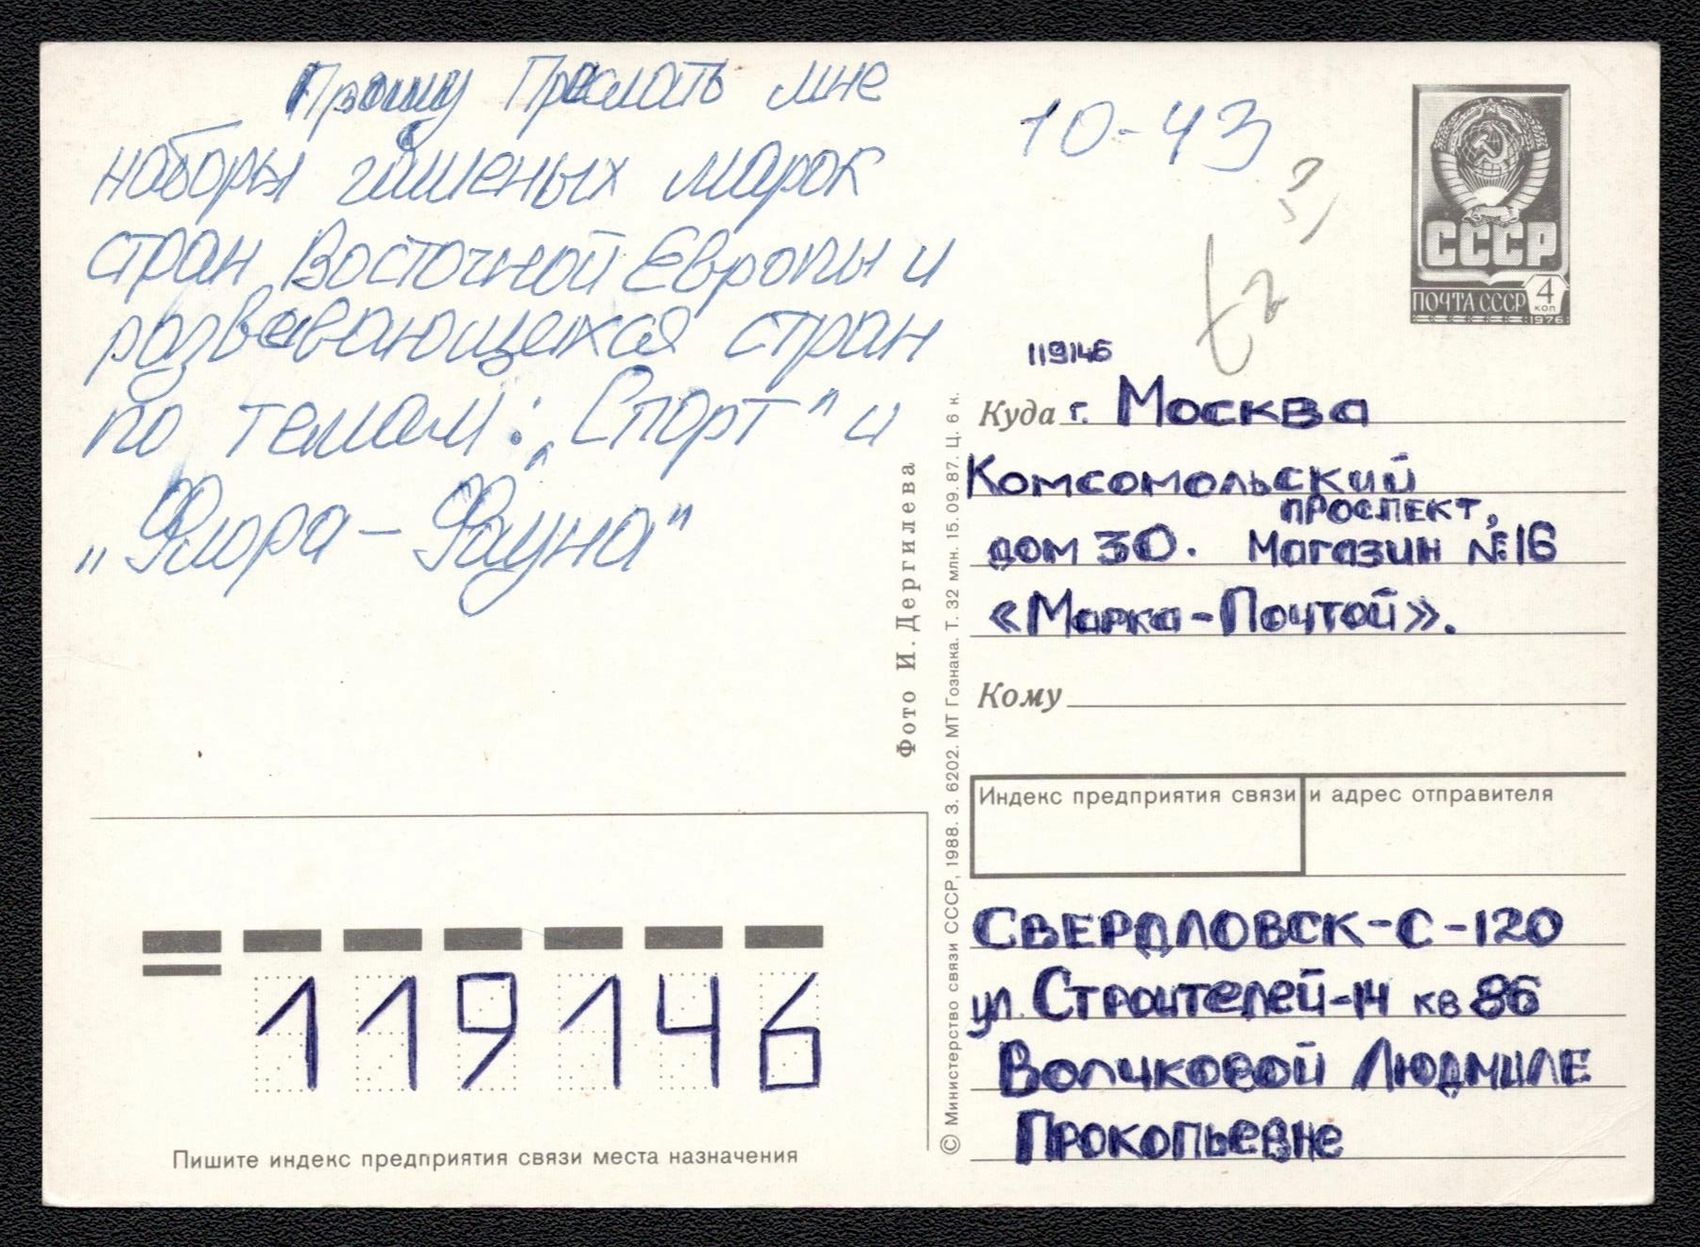 Прошу Прислать мне
наборы гашеных марок
стран Восточной Европы и
развевающихся стран
по темам: „Спорт" и
„Флора - Фауна"
10-43
СССР
ПОЧТА СССР 4 КОП
1976
119146
Куда г. Москва
Комсомольский
проспект,
дом 30. Магазин №16
«Марка-Почтой».
Кому
Индекс предприятия связи и адрес отправителя
СВЕРДЛОВСК-С-120
ул. Строителей-14 кв 86
Волчковой Людмиле
Прокопьевне
Фото И. Дергилева
© Министерство связи СССР, 1988. З. 6202. МТ Гознака. Т. 32 млн. 15.09.87. Ц. 6 к.
119146
Пишите индекс предприятия связи места назначения